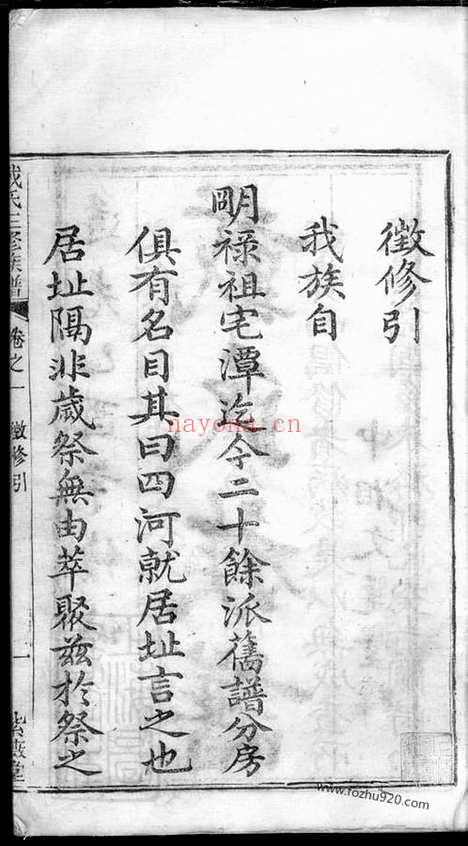 徵修引
我族自
明祿祖宅潭迄今二十餘派舊譜分房
俱有名目其曰四河就居址言之也
居址隔非歲祭無由萃聚茲於祭之
氏三修族譜
卷之一
徵修引
一
nayona.cn
www.fozhu920.com